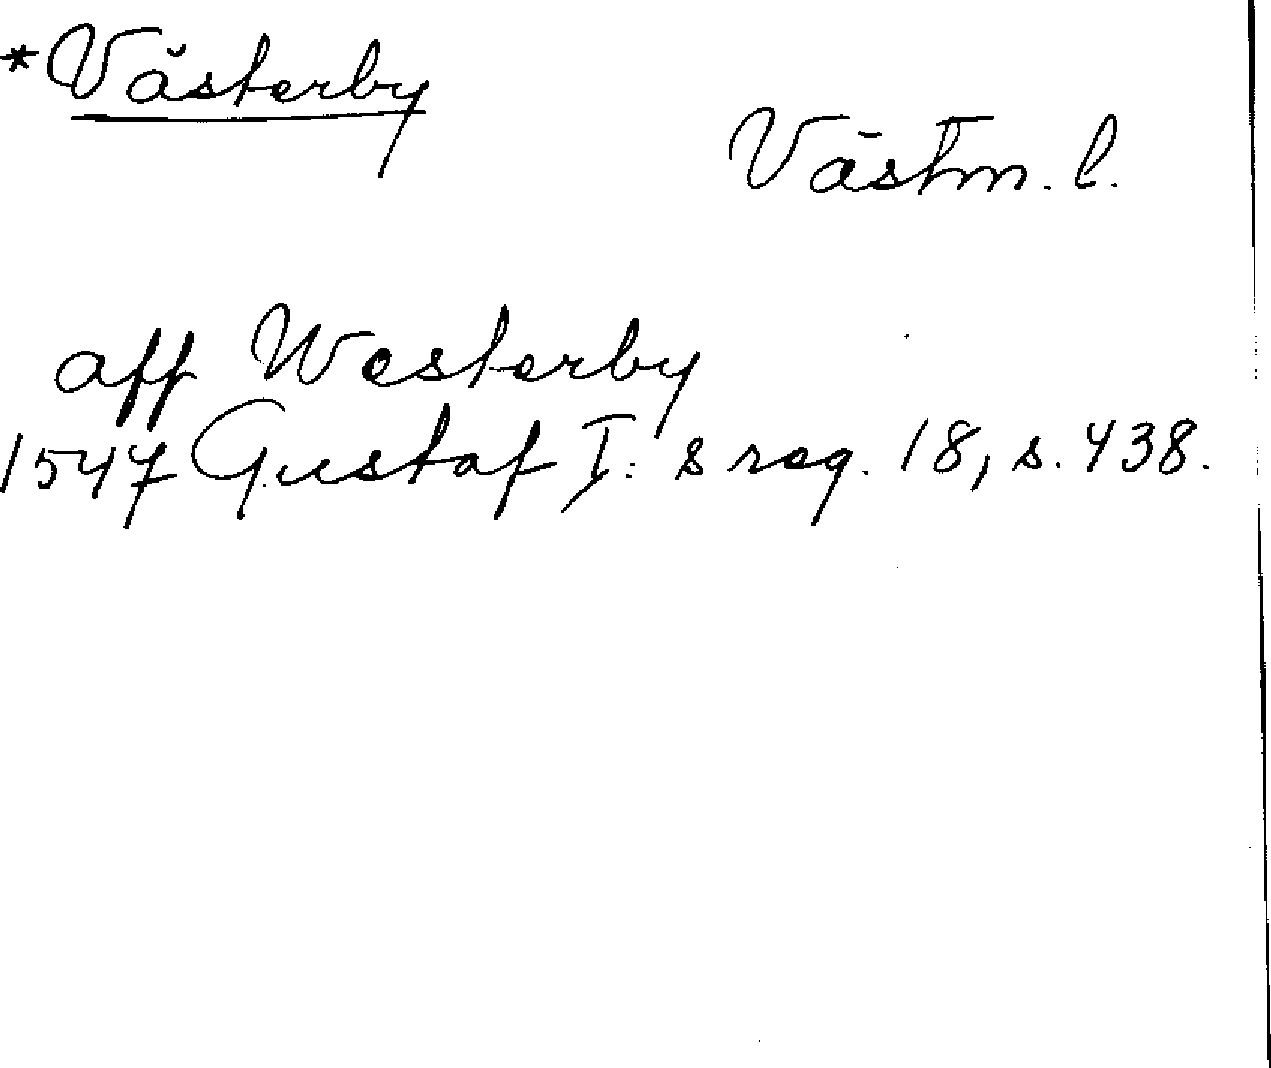 *Västerby
Västm. l.
aff Westerby
1547 Gustaf I:s reg. 18, s. 438.